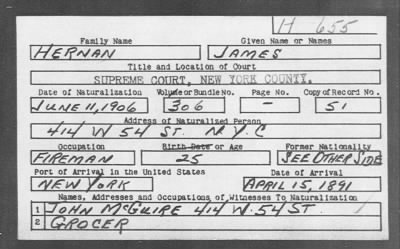 H 655
Family Name Given Name or Names
HERNAN JAMES
Title and Location of Court
SUPREME COURT, NEW YORK COUNTY.
Date of Naturalization Volume or Bundle No. Page No. Copy of Record No.
JUNE 11, 1906 306 - 51
Address of Naturalized Person
414 W 54 ST. N.Y.C
Occupation Birth Date or Age Former Nationality
FIREMAN 25 SEE OTHER SIDE
Port of Arrival in the United States Date of Arrival
NEW YORK APRIL 15, 1891
Names, Addresses and Occupations of Witnesses To Naturalization
1 JOHN McGUIRE 414 W. 54 ST
2 GROCER